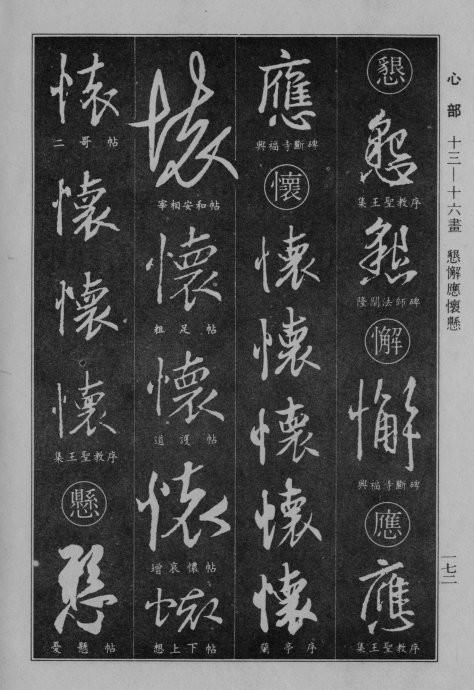 心部 十三—十六畫 懇懈應懷懸
一七二
懇
懇
集王聖教序
懇
隆闡法師碑
懈
懈
興福寺斷碑
應
應
集王聖教序
應
興福寺斷碑
懷
懷
懷
懷
懷
懷
蘭亭序
懷
宰相安和帖
懷
粗足帖
懷
道護帖
懷
增哀懷帖
懷
想上下帖
懷
二哥帖
懷
懷
懷
集王聖教序
懸
懸
憂懸帖